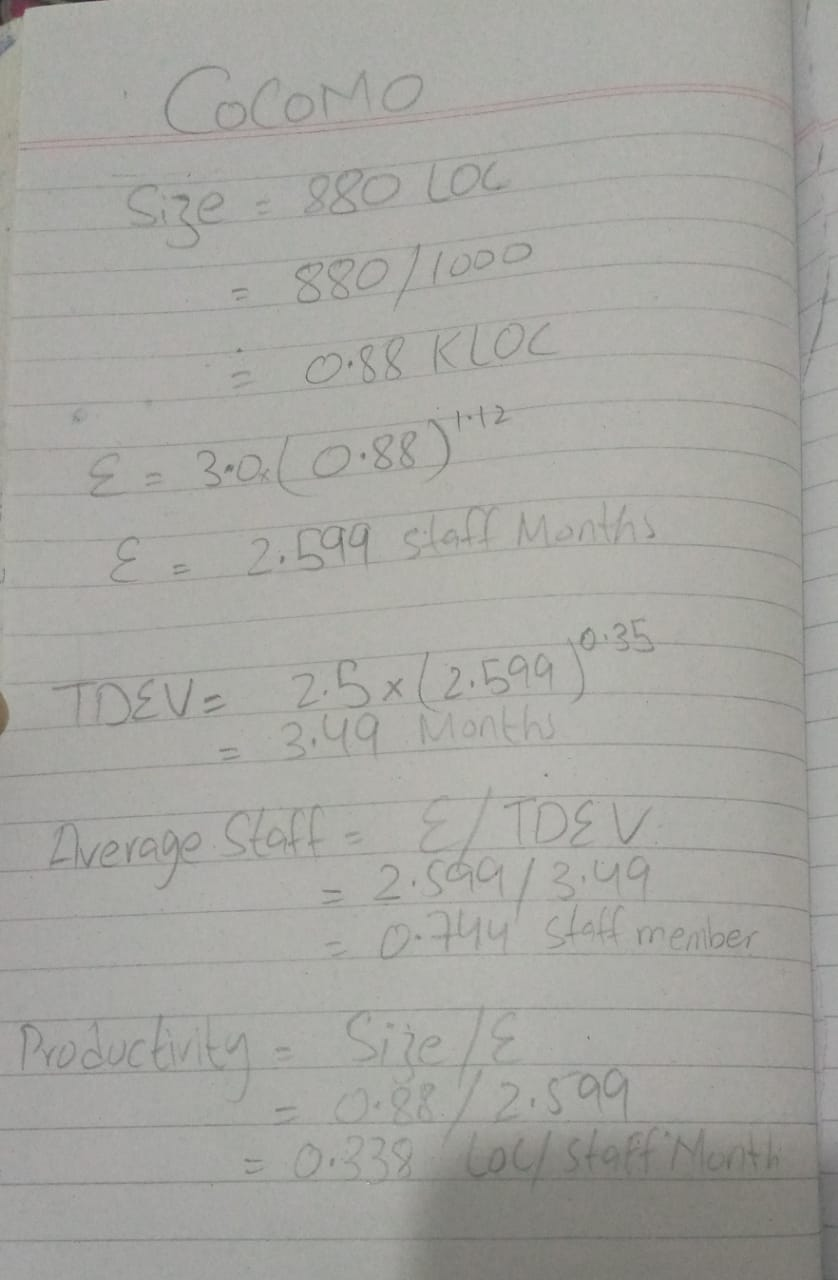 COCOMO
Size = 880 LOC
= 880/1000
= 0.88 KLOC
E = 3.0x(0.88)^1.12
E = 2.599 Staff Months
TDEV = 2.5x(2.599)^0.35
= 3.49 Months
Average Staff = E/TDEV
= 2.599/3.49
= 0.744 staff member
Productivity = Size/E
= 0.88/2.599
= 0.338 LOC/Staff Month